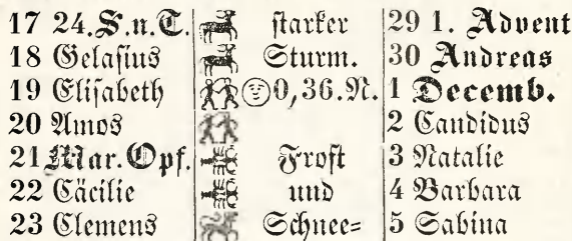 17 24.S.n.T. starker 29 1. Advent
18 Gelasius Sturm. 30 Andreas
19 Elisabeth 0,36.N. 1 Decemb.
20 Amos 2 Candidus
21 Mar. Opf. Frost 3 Natalie
22 Cäcilie und 4 Barbara
23 Clemens Schnee= 5 Sabina